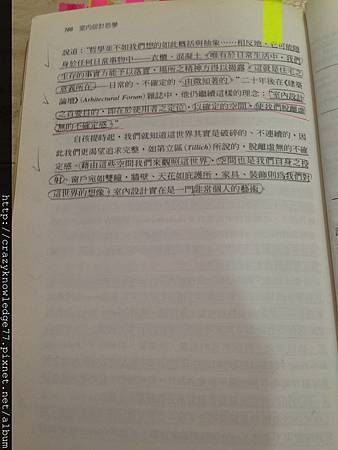 160 室內設計哲學
說道：“哲學並不如我們想的如此概括與抽象……相反地，它可能隱
身於任何日常事物中——衣櫃、混凝土。唯有於日常生活中，我們
生存的事實方能予以落實，場所之精神方得以揭露。這就是住宅之
意義所在——日常的、不確定的、由微知著的。”二十年後在《建築
論壇》(Arhitectural Forum)雜誌中，他仍繼續這樣的理念：“室內設計
之真要目的，即在於使用者之定位，以確定的空間，使我們脫離虛
無的不確定感。”
自孩提時起，我們就知道這世界其實是破碎的、不連續的，因
此我們更渴望追求完整，如第立區(Tillich)所說的，脫離虛無的不確
定感。藉由這些空間我們來觀照這世界。空間也是我們自身之投
射。窗戶宛如雙瞳，牆壁、天花如庇護所，家具、裝飾則為我們對
這世界的想像。室內設計實在是一門非常個人的藝術。
http://crazyknowledge77.pixnet.net/album